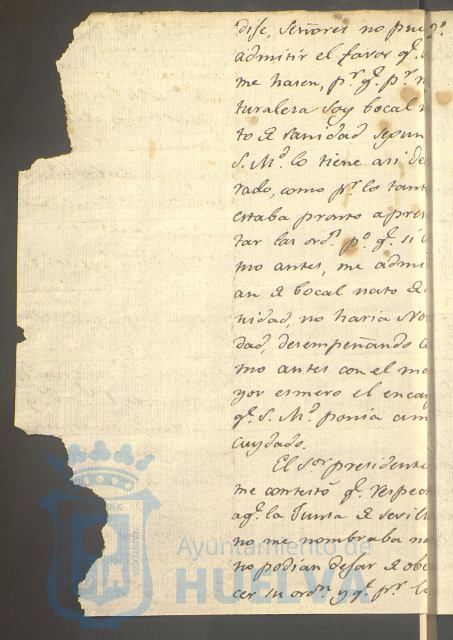 dije, Señores no pue
admitir el favor q.e
me hasen, p.r q.e p.r n
turalera soy bocal n
to de sanidad segun
S. M.d lo tiene asi de
rado, como p.r lo tant
estaba pronto a pres
tar las ord.s p.o q.e si
mo antes, me admi
an de bocal nato de
nidad, no haria No
dad, desempeñando co
mo antes con el ma
yor esmero el encar
q.e S. M.d ponia a mi
cuydado.
El S.or presidente
me contestó q.e respec
a q.e la Junta de Sevill
no me nombraba no
no podian dejar de obe
cer su ord.n y q.e p.r lo
Ayuntamiento de
HUELVA